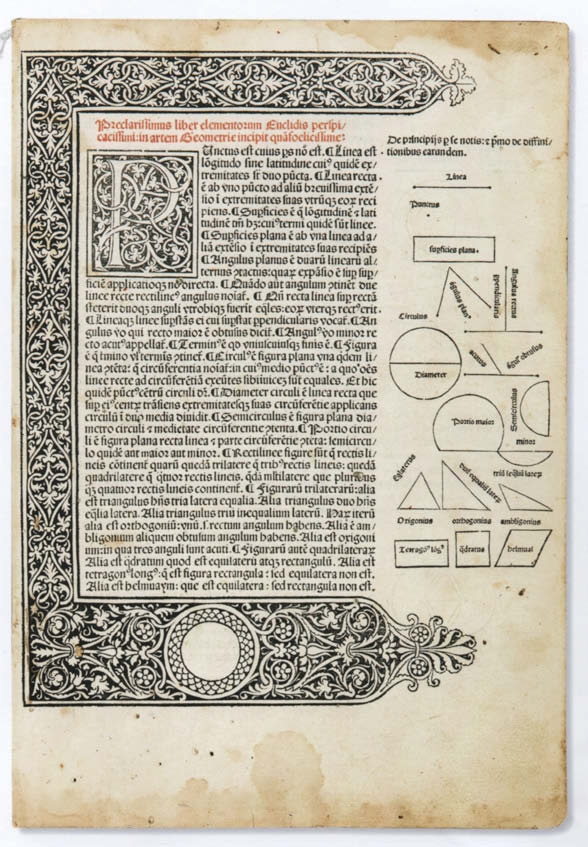 Preclarissimus liber elementorum Euclidis perspi/
cacissimi: in artem Geometrie incipit quãfoelicissime:
PUnctus est cuius ps nõ est. ¶ Linea est
lõgitudo sine latitudine cuiꝰ quidẽ ex/
tremitates sũt duo pũcta. ¶ Linea recta
ẽ ab vno pũcto ad aliũ breuissima extẽ/
sio ĩ extremitates suas vtrũqꝫ eoꝝ reci
piens. ¶ Supficies ẽ q̃ lõgitudinẽ ⁊ lati
tudinẽ tm̃ hꝫ: cuiꝰ termi quidẽ sũt linee.
¶ Supficies plana ẽ ab vna linea ad a/
liã extẽsio ĩ extremitates suas recipiẽs
¶ Angulus planus ẽ duarũ linearũ al/
ternus ꝯtactus: quaꝝ expãsio ẽ sup sup/
ficiẽ applicatioqꝫ nõ directa. ¶ Quãdo aũt angulum ꝯtinẽt due
linee recte rectilineꝰ angulus noiaĩ. ¶ Qñ recta linea sup rectã
steterit duoqꝫ anguli vtrobiqꝫ fuerĩt eq̃les: eoꝝ vterqꝫ rectꝰ erit.
¶ Lineaqꝫ linee supstãs ei cui supstat ppendicularis vocaĩ. ¶ An
gulus vo qui recto maior ẽ obtusus diciĩ. ¶ Angulꝰ vo minor re
cto acutꝰ appellaĩ. ¶ Terminꝰ ẽ qd vniuscuiusqꝫ finis ẽ. ¶ Figura
ẽ q̃ tmino vl̃ termis ꝯtineĩ. ¶ Circulꝰ ẽ figura plana vna qdem li/
nea ꝯtẽta: q̃ circũferentia noiaĩ: in cuiꝰ medio pũctꝰ ẽ: a quoꝰ oẽs
linee recte ad circũferẽtiã exeũtes sibiinuicẽ sũt equales. Et hic
quidẽ pũctꝰ cẽtrũ circuli dĩ. ¶ Diameter circuli ẽ linea recta que
sup eiꝰ centꝝ trãsiens extremitatesqꝫ suas circũferẽtie applicans
circulũ ĩ duo media diuidit. ¶ Semicirculus ẽ figura plana dia/
metro circuli ⁊ medietate circũferentie ꝯtenta. ¶ Portio circu/
li ẽ figura plana recta linea ⁊ parte circũferẽtie ꝯtẽta: semicircu/
lo quidẽ aut maior aut minor. ¶ Rectilinee figure sũt q̃ rectis li/
neis cõtinent quarũ quedã trilatere q̃ tribꝰ rectis lineis: quedã
quadrilatere q̃ qtuor rectis lineis. qdã mltilatere que pluribus
qꝫ quatuor rectis lineis continent. ¶ Figurarũ trilaterarũ: alia
est triangulus hñs tria latera equalia. Alia triangulus duo hñs
eq̃lia latera. Alia triangulus triũ inequalium laterũ. Haꝝ iterũ
alia est orthogoniũ: vnũ .s. rectum angulum habens. Alia ẽ am/
bligonium aliquem obtusum angulum habens. Alia est oxigoni
um: in qua tres anguli sunt acuti. ¶ Figurarũ aũt quadrilateraꝝ
Alia est q̃dratum quod est equilaterũ atqꝫ rectangulũ. Alia est
tetragonꝰ longꝰ: q̃ est figura rectangula: sed equilatera non est.
Alia est helmuaym: que est equilatera: sed rectangula non est.
De principijs p se notis: ⁊ pmo de diffini/
tionibus earundem.
Linea
Punctus
supficies plana.
ãgulus planꝰ
ppendicularis
ãngulus rectus
Circulus
Diameter
acutus
ãgul obtusus
Portio maior
Semicirculus
minor
Eqlaterus
duoꝝ equaliũ lateꝝ
triũ ineq̃liũ lateꝝ
Origonius
orthogonius
ambligonius
Tetragonꝰ lõgꝰ
q̃dratus
helmuaĩ